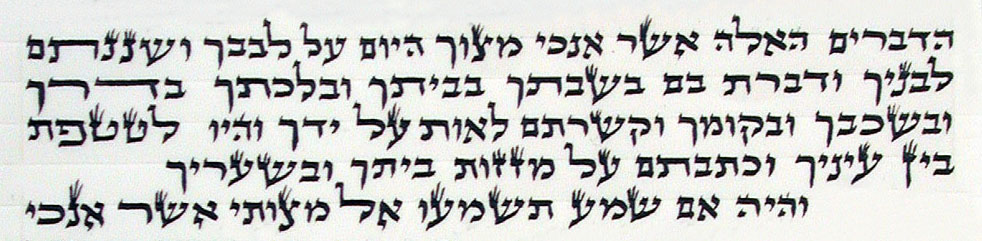 הדברים האלה אשר אנכי מצוך היום על לבבך ושננתם
לבניך ודברת בם בשבתך בביתך ובלכתך בדרך
ובשכבך ובקומך וקשרתם לאות על ידך והיו לטטפת
בין עיניך וכתבתם על מזזות ביתך ובשעריך
והיה אם שמע תשמעו אל מצותי אשר אנכי